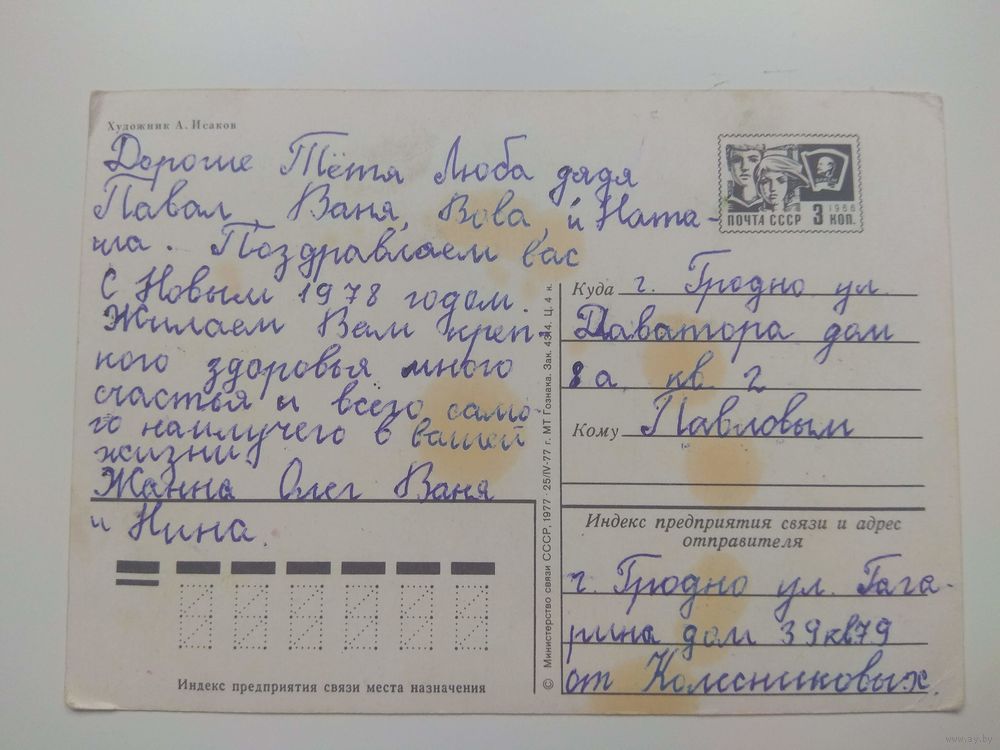 Художник А. Исаков
Дорогие Тётя Люба дядя
Павал, Ваня, Вова, и Ната-
ша. Поздравлаем вас
С Новым 1978 годом.
Жилаем Вам креп-
кого здоровья много
счастья и всего само-
го наилучего в вашей
жизни
Жанна Олег Ваня
и Нина.
Индекс предприятия связи места назначения
© Министерство связи СССР, 1977 · 25/IV-77 г. МТ Гознака. Зак. 4344. Ц. 4 к.
ПОЧТА СССР 3 КОП.
1966
Куда г. Гродно ул.
Доватора дом
8а, кв. 2
Кому Павловым
Индекс предприятия связи и адрес
отправителя
г. Гродно ул. Гага-
рина дом 39 кв79
от Колесниковых.
www.ay.by